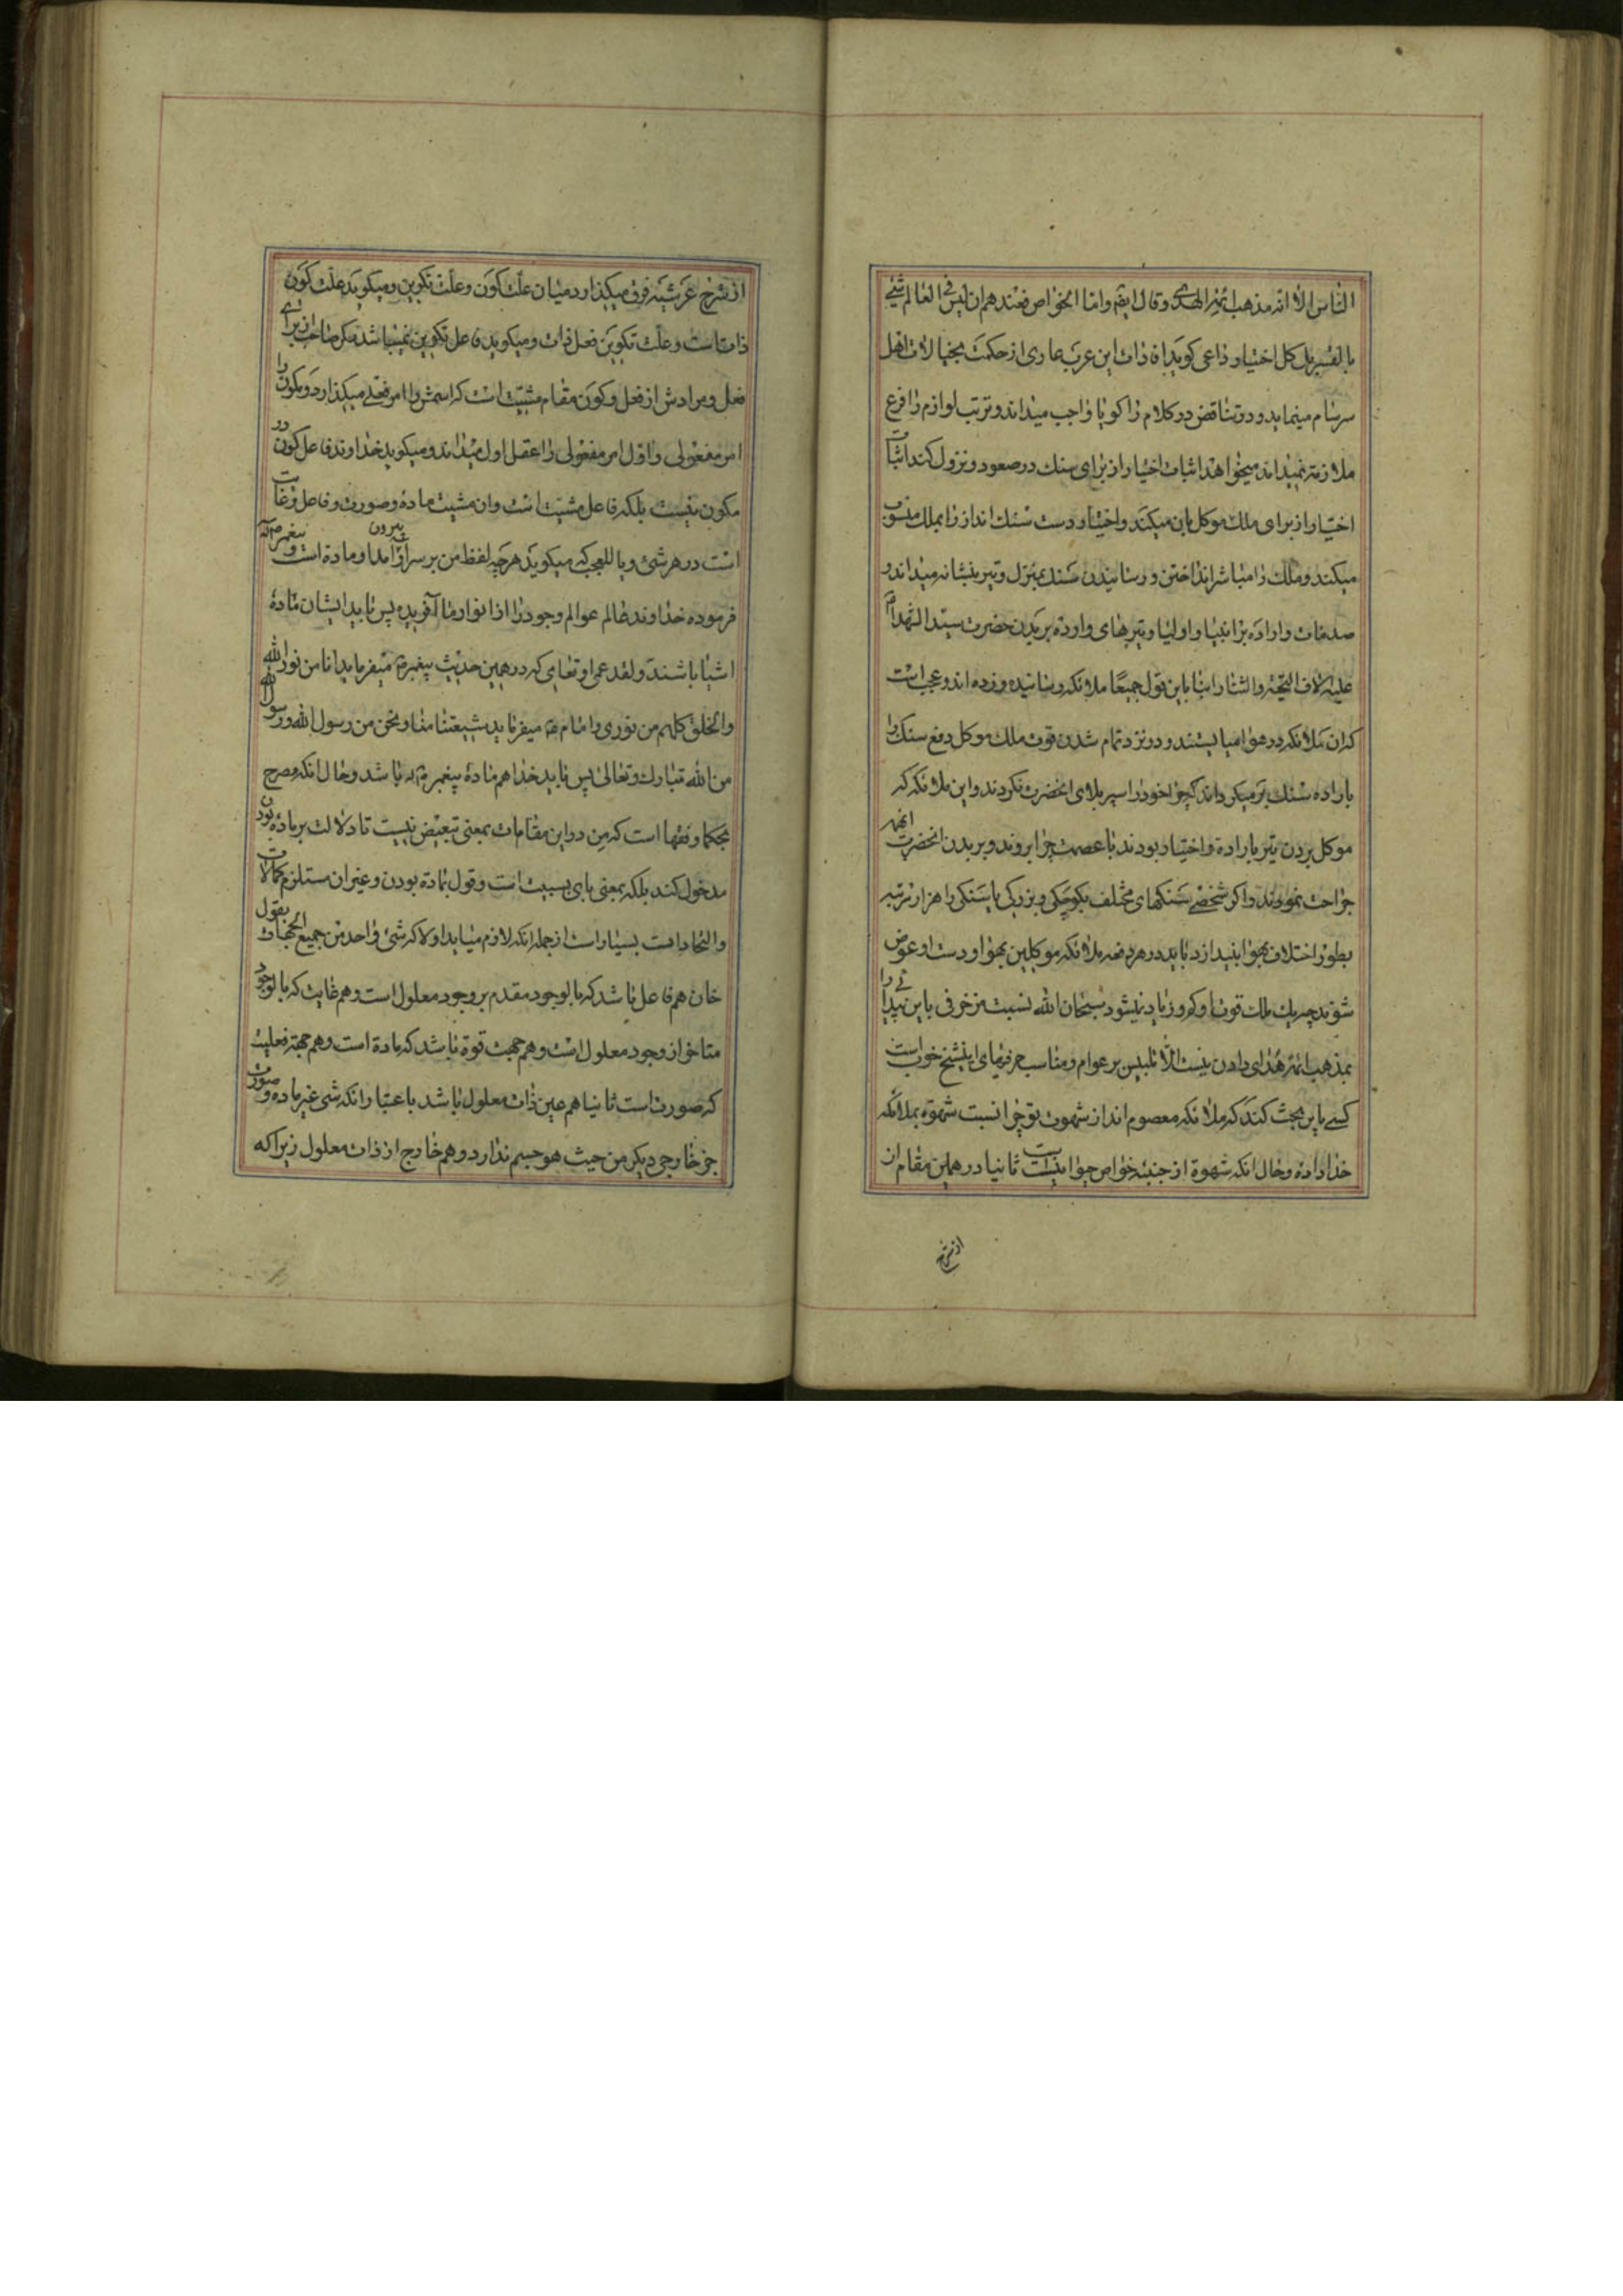 الناس الا انه مذهب ائمة الهدی و قال ایضم و اما الخواص فعندهم ان لیس فی العالم شیٔ
بالقسر بل کل اختیار و داعی کوید افادات این عرب عاری از حکمت بخیالات اهل
سرسام مینماید و دو تناقض در کلام را کویا واجب میداند و ترتب لوازم را فرع
ملازمة نمیداند میخواهد اثبات اختیار از برای سنک در صعود و نزول کند اثبات
اختیار از برای ملک موکل بان میکند و اختیار و دست سنک انداز را بملک منسوب
میکند و ملک را مباشر انداختن و رسانیدن سنک بمنزل و تیر بنشانه میداند و
صدمات وارده بر انبیا و اولیا و تیرهای وارده بر بدن حضرت سید الشهدا
علیه الاف التحیة و الثنا را بنا باین قول جمیعا ملائکه رسانیده و زده اند و عجب است
که ان ملائکه در هوا میایستند و در نزد تمام شدن قوت ملک موکل دفع سنک را
باراده سنک بر میکرداند چرا خود را سپر بلای انحضرت نکردند و این ملائکه که
موکل بردن تیر باراده و اختیار بودند با عصمت چرا بروند و بر بدن انحضرت انهمه
جراحت نمودند و اکر شخصی سنکهای مختلف بکوچکی و بزرکی یا سنکی را هزار مرتبه
بطور اختلاف بهوا بیندازد باید در هر دفعه ملائکه موکلین بهوا و دست او عوض
شوند چه یک ملک قوت او کم و زیاد نیشود سبحان الله نسبت مزخرفی باین پیدائی را
بمذهب ائمه هدای دادن نیست الا تلبیس بر عوام و مناسب حرفهای اینشیخ خواست
کسی باین بحث کند که ملائکه معصوم اند از شهوت تو چرا نسبت شهوة بملائکه
خدا داده و حال انکه شهوة از جنبه خواص حیوانیست ثانیا در همین مقام از
از شرح
از شرح عرشیه فرق میکذارد میان علت کون و علت تکوین و میکوید علت کون
ذات است و علت تکوین فعل ذات و میکوید فاعل تکوین نمیباشد مکر صاحب از برای
فعل و مرادش از فعل و کون مقام مشیت است که اسمش را امر فعلی میکذارد و مکون را
امر مفعولی و اول امر مفعولی را عقل اول میداند و میکوید خداوند فاعل کون در
مکون نیست بلکه فاعل مشیت است وان مشیت ماده و صورت و فاعل و غایت
است در هر شیٔ و یا للعجب که میکوید هرچه لفظ من بر سر او بیرون امد او ماده است و پیغمبر ص
فرموده خداوند عالم عوالم وجود را از انوار ما آفریده پس باید ایشان مادهٔ
اشیا باشند و لقد عمی او تعامی که در همین حدیث پیغمبر ص میفرماید انا من نور الله
و الخلق کلهم من نوری و امام ع میفرماید شیعتنا منا و نحن من رسول الله و رسول الله
من الله تبارک و تعالی پس باید خدا هم مادهٔ پیغمبر ص باشد و حال انکه مصرح
بحکما و فقها است که من در این مقامات بمعنی تبعیض نیست تا دلالت بر ماده بودن
مدخول کند بلکه بمعنی بای سببیت است و قول بماده بودن و غیر ان مستلزم کمالات
و اتحادات بسیار است از جمله انکه لازم میاید اولا که شیٔ واحد من جمیع الجهات بقول
خان هم فاعل باشد که بالوجود مقدم بر وجود معلول است و هم غایت که بالوجود
متاخر از وجود معلول است و هم جهت قوة باشد که ماده است و هم جهة فعلیت
که صورت است ثانیا هم عین ذات معلول باشد باعتبار انکه شی غیر ماده و صورت
جز خارجی دیکر من حیث هو جسم ندارد و هم خارج از ذات معلول زیرا که